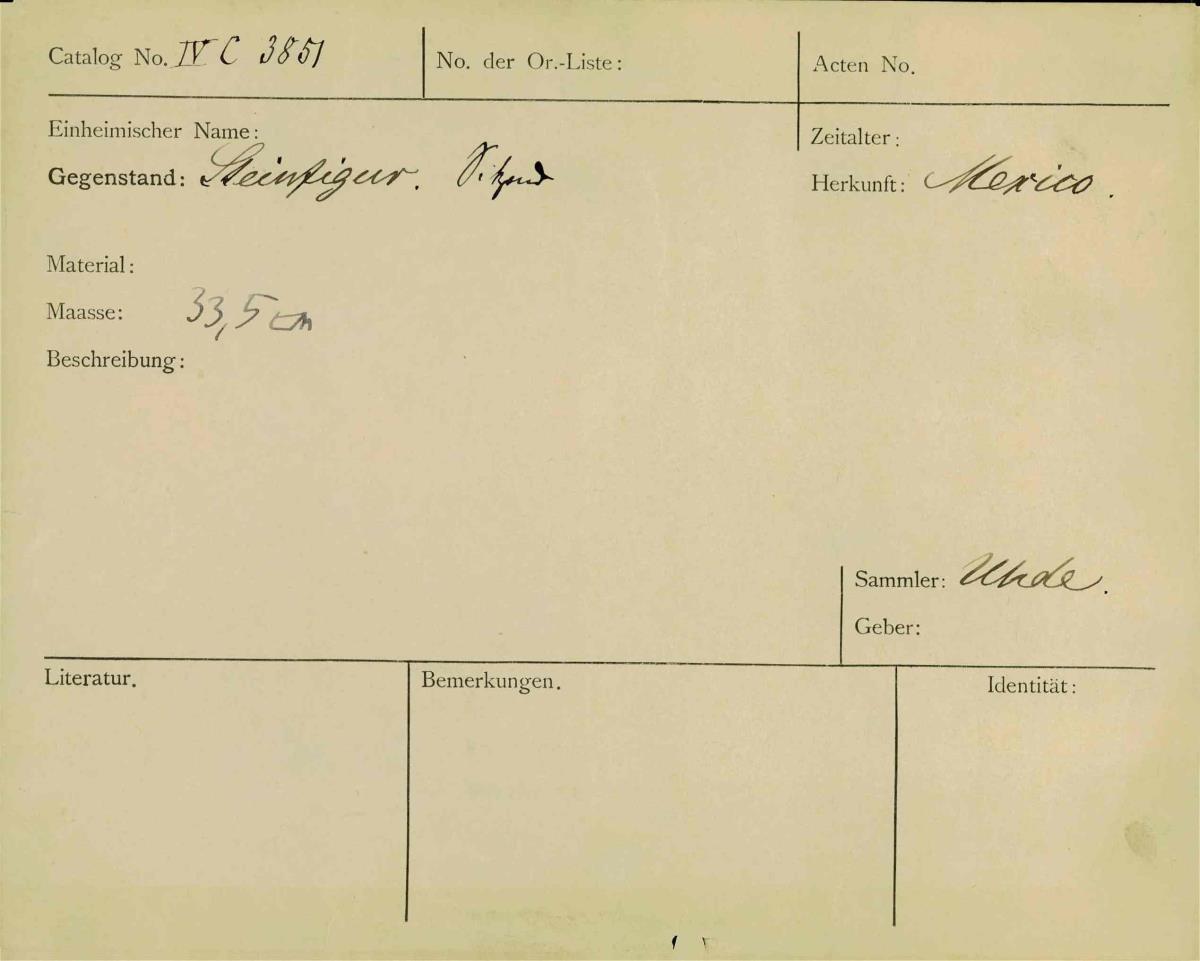 Catalog No. IV C 3851 No. der Or.-Liste: Acten No.
Einheimischer Name: Zeitalter:
Gegenstand: Steinfigur. Sitzend Herkunft: Mexico.
Material:
Maasse: 33,5 cm
Beschreibung:
Sammler: Uhde.
Geber:
Literatur. Bemerkungen. Identität: